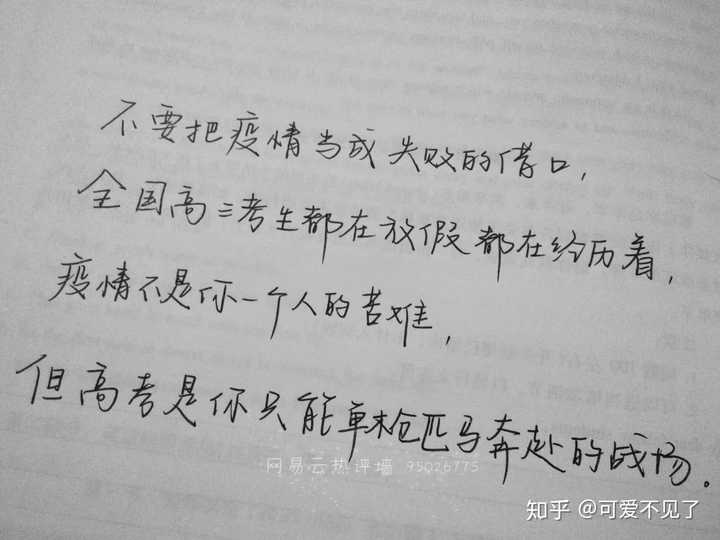 不要把疫情当成失败的借口，
全国高三考生都在放假都在经历着，
疫情不是你一个人的苦难，
但高考是你只能单枪匹马奔赴的战场。
网易云热评墙 95026775
知乎 @可爱不见了